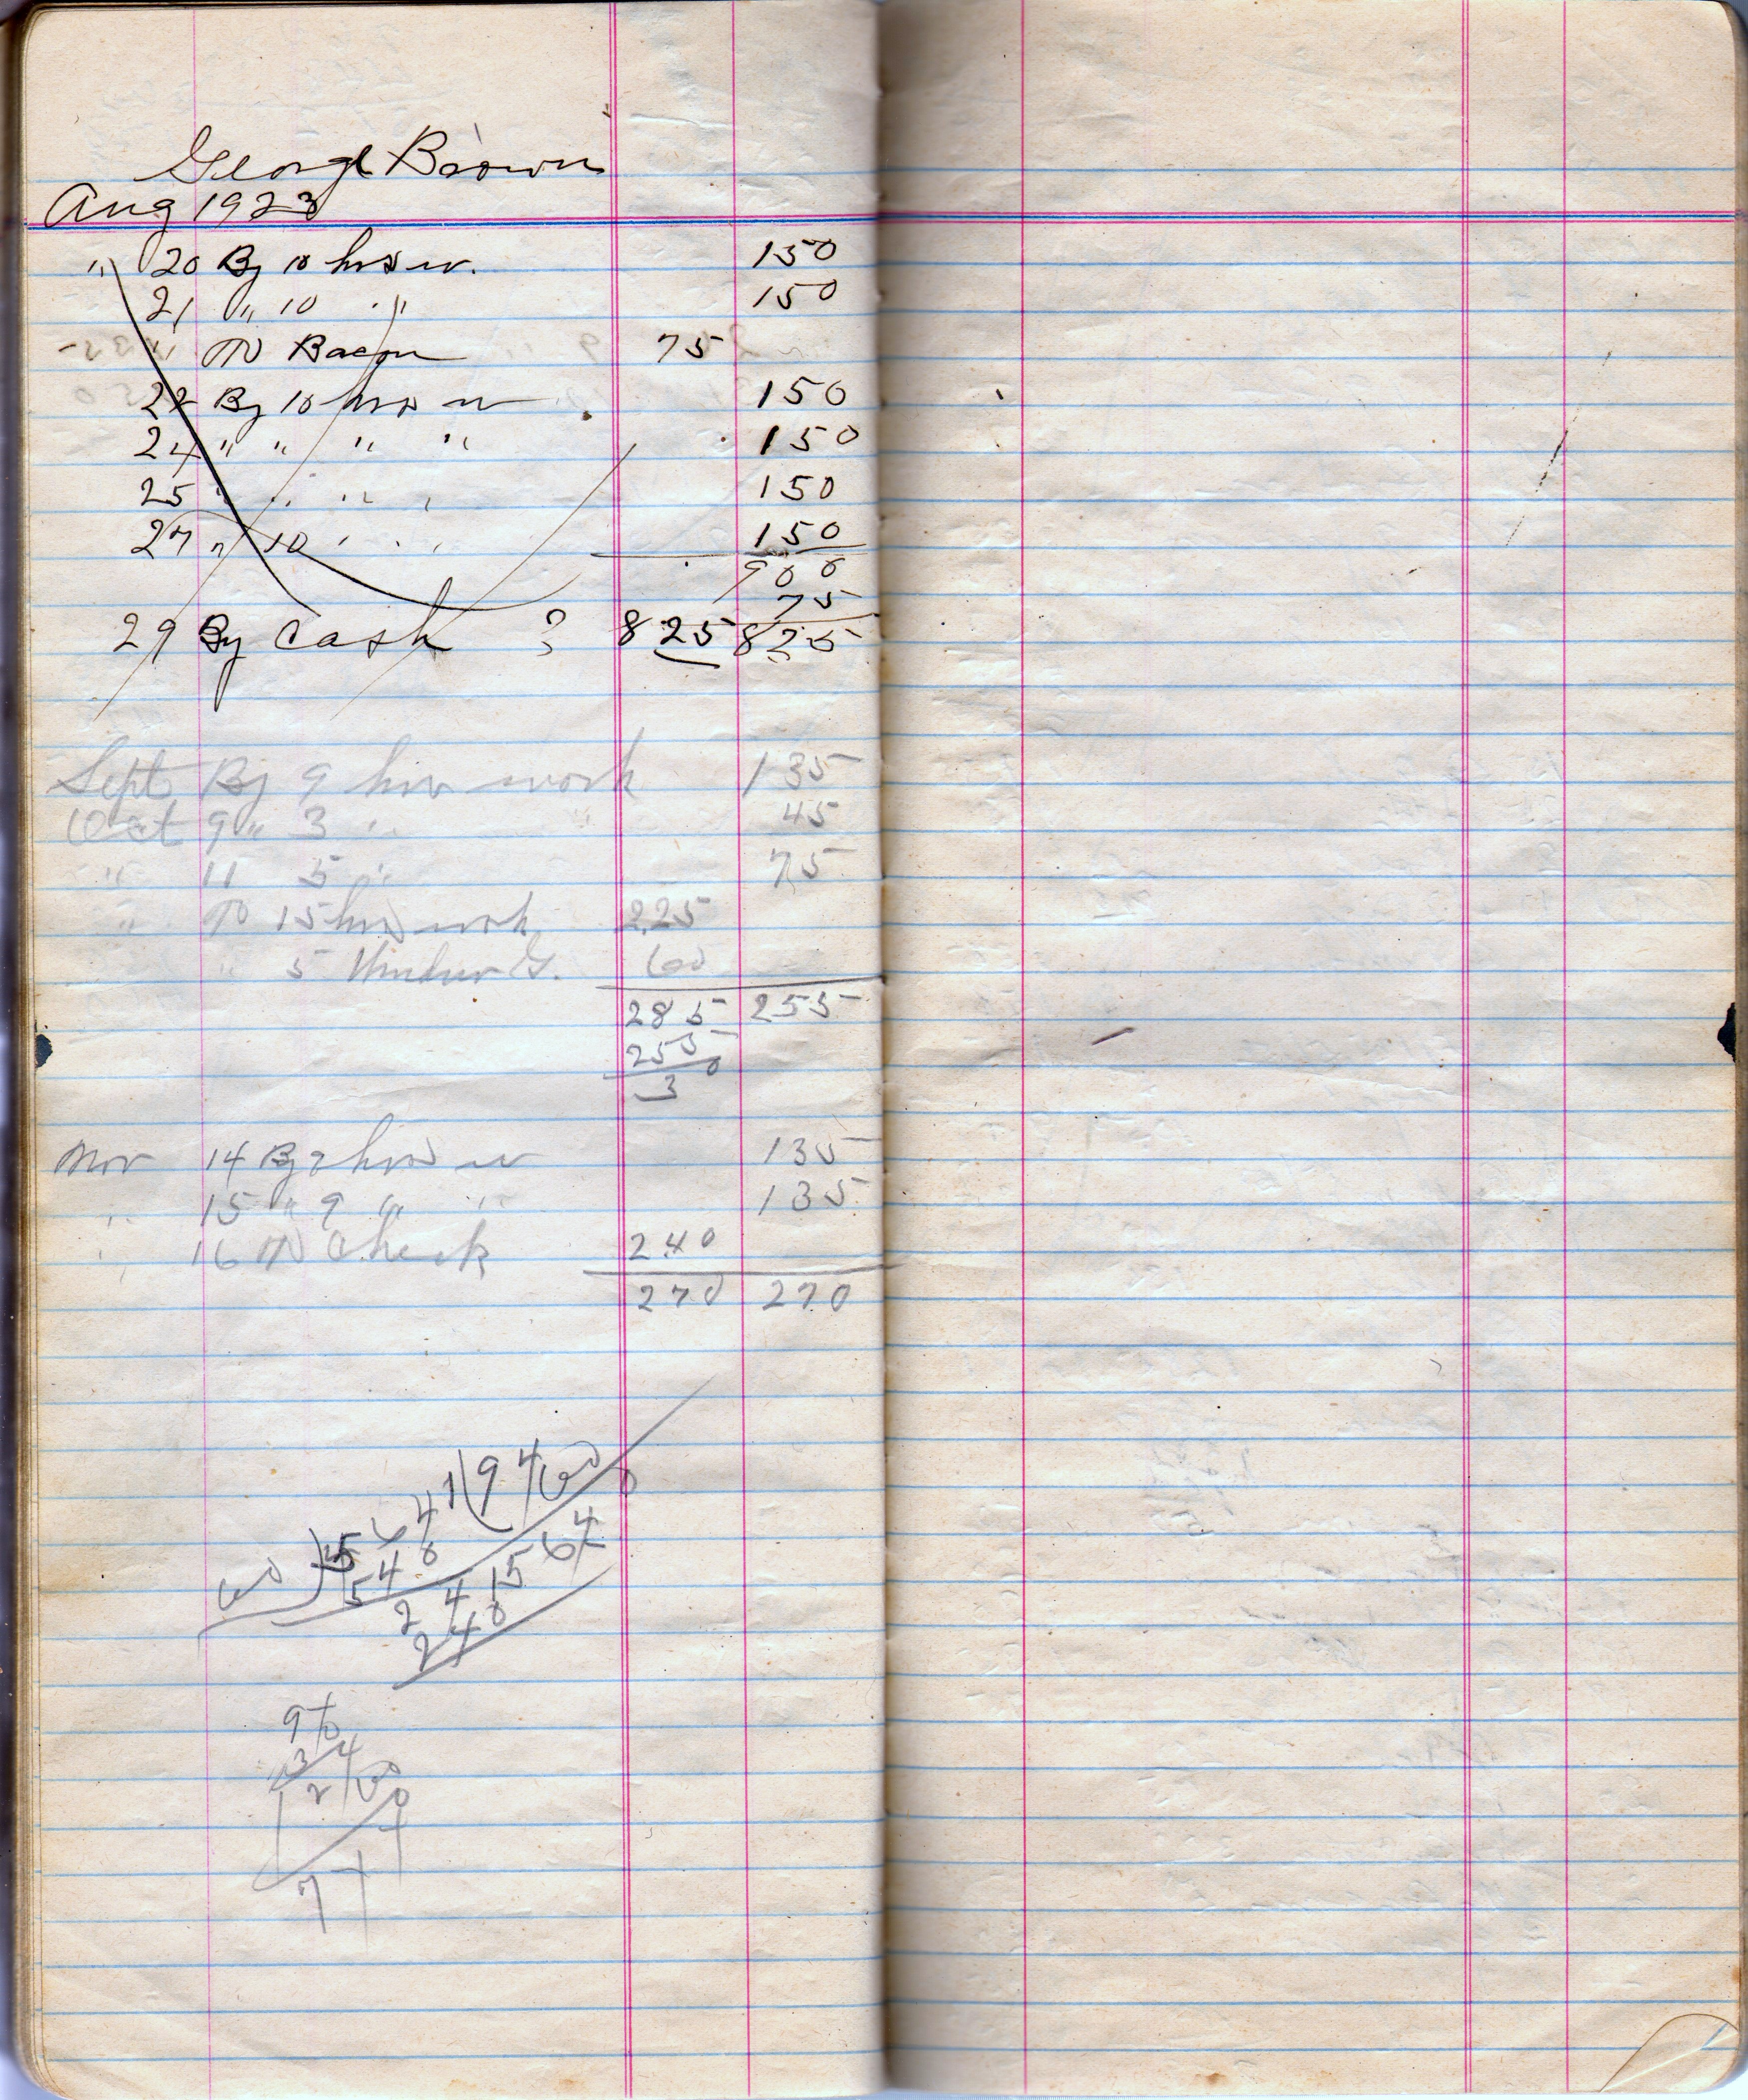 George Brown
Aug 1923
" 20 By 10 hrs w. 150
21 " 10 " 150
" To Bacon 75
22 By 10 hrs w 150
24 " " " " 150
25 " " " " 150
27 " 10 " " " 150
900
75
29 By Cash 825 825
Sept By 9 hrs work 135
Oct 9 " 3 " " 45
" 11 5 " 75
" To 15 hrs work 225
" " 5 60
285 255
255
30
Nov 14 By 9 hrs w 135
" 15 " 9 " " 135
" 16 To Check 240
270 270
60 ) 564
540
24
240
1564
94
34